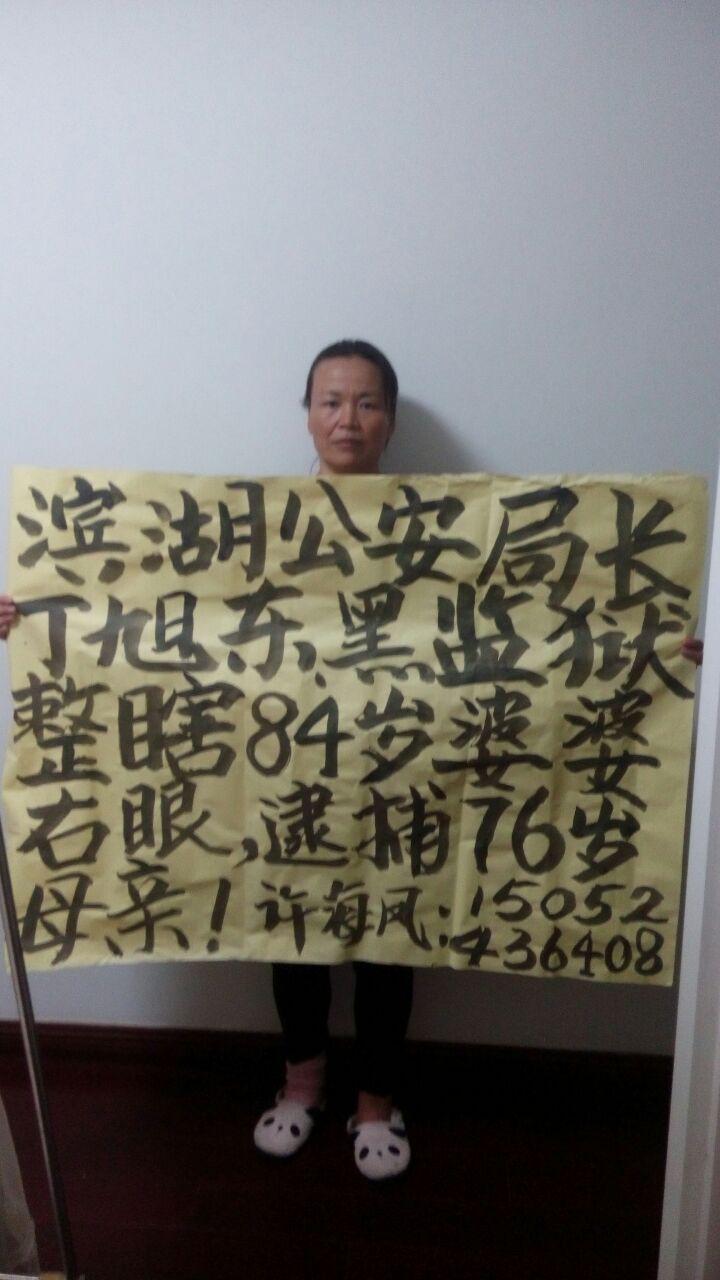 滨湖公安局长
丁旭东黑监狱
整瞎84岁婆婆
右眼,逮捕76岁
母亲!许海风:15052
436408